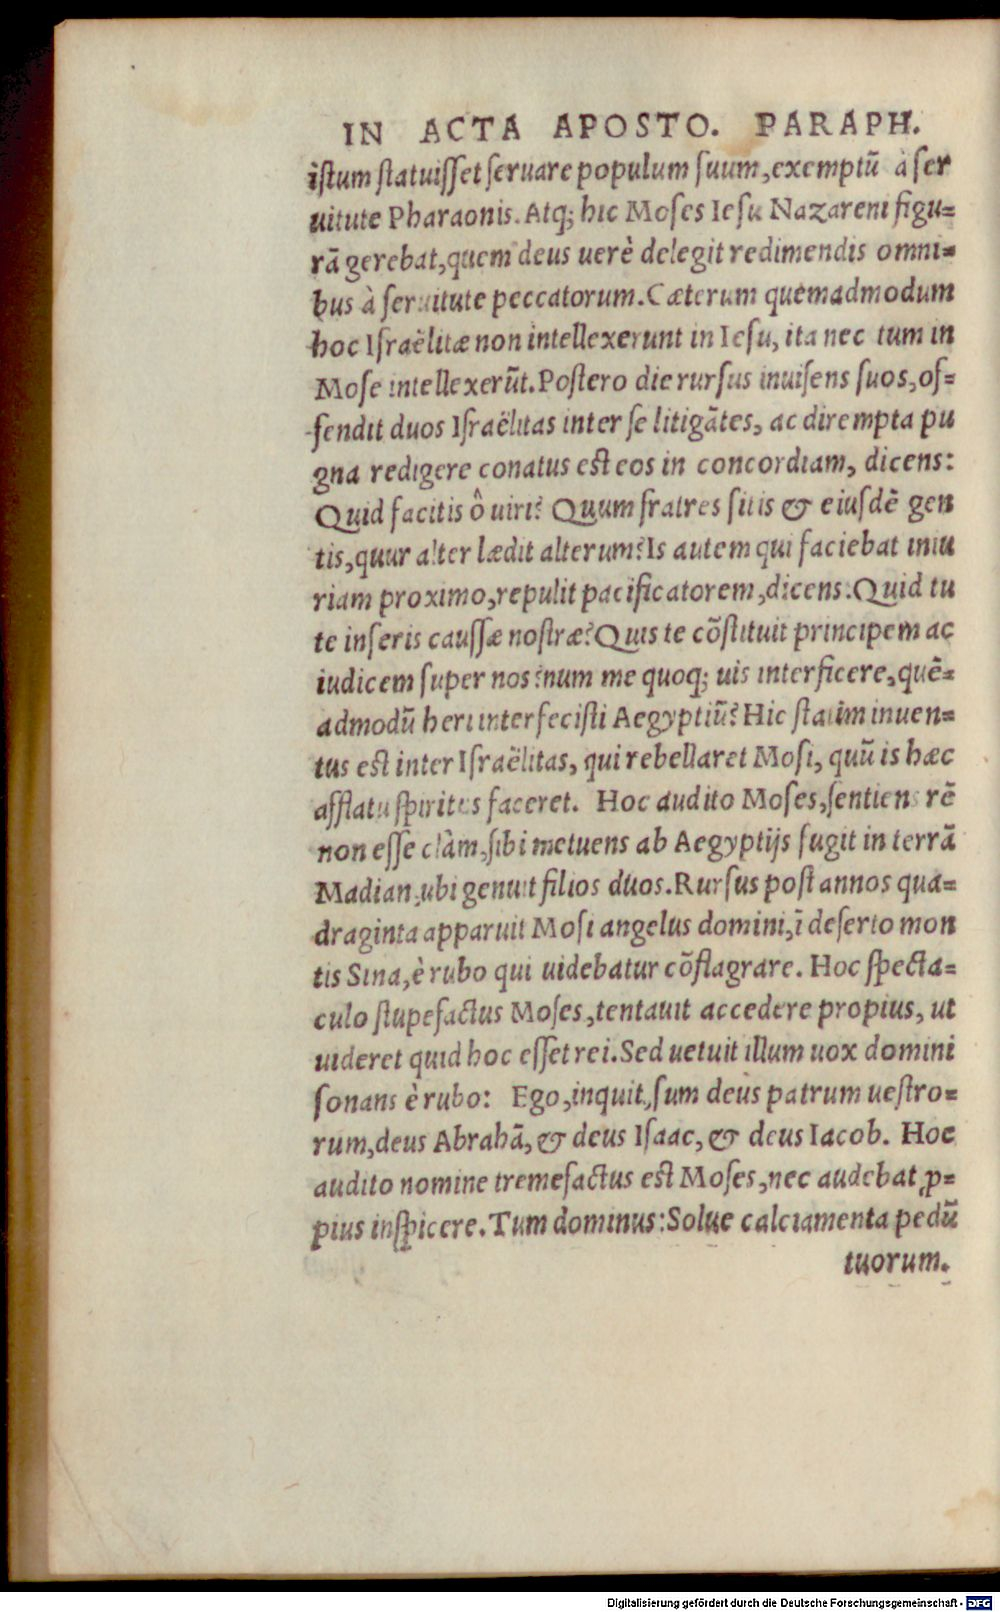 IN ACTA APOSTO. PARAPH.
istum statuisset seruare populum suum, exemptū à ser
uitute Pharaonis. Atq; hic Moses Iesu Nazareni figu=
rā gerebat, quem deus uerè delegit redimendis omni=
bus à seruitute peccatorum. Cæterum quemadmodum
hoc Israëlitæ non intellexerunt in Iesu, ita nec tum in
Mose intellexerūt. Postero die rursus inuisens suos, of=
fendit duos Israëlitas inter se litigātes, ac dirempta pu
gna redigere conatus est eos in concordiam, dicens:
Quid facitis ô uiri? Quum fratres sitis & eiusdē gen
tis, quur alter lædit alterum? Is autem qui faciebat iniu
riam proximo, repulit pacificatorem, dicens: Quid tu
te inseris caussæ nostræ? Quis te cōstituit principem ac
iudicem super nos? num me quoq; uis interficere, quē=
admodū heri interfecisti Aegyptiū? Hic statim inuen=
tus est inter Israëlitas, qui rebellaret Mosi, quū is hæc
afflatu spiritus faceret. Hoc audito Moses, sentiens rē
non esse clàm, sibi metuens ab Aegyptijs fugit in terrā
Madian, ubi genuit filios duos. Rursus post annos qua=
draginta apparuit Mosi angelus domini, ī deserto mon
tis Sina, è rubo qui uidebatur cōflagrare. Hoc specta=
culo stupefactus Moses, tentauit accedere propius, ut
uideret quid hoc esset rei. Sed uetuit illum uox domini
sonans è rubo: Ego, inquit, sum deus patrum uestro=
rum, deus Abrahā, & deus Isaac, & deus Iacob. Hoc
audito nomine tremefactus est Moses, nec audebat ꝓ=
pius inspicere. Tum dominus: Solue calciamenta pedū
tuorum.
Digitalisierung gefördert durch die Deutsche Forschungsgemeinschaft - DFG